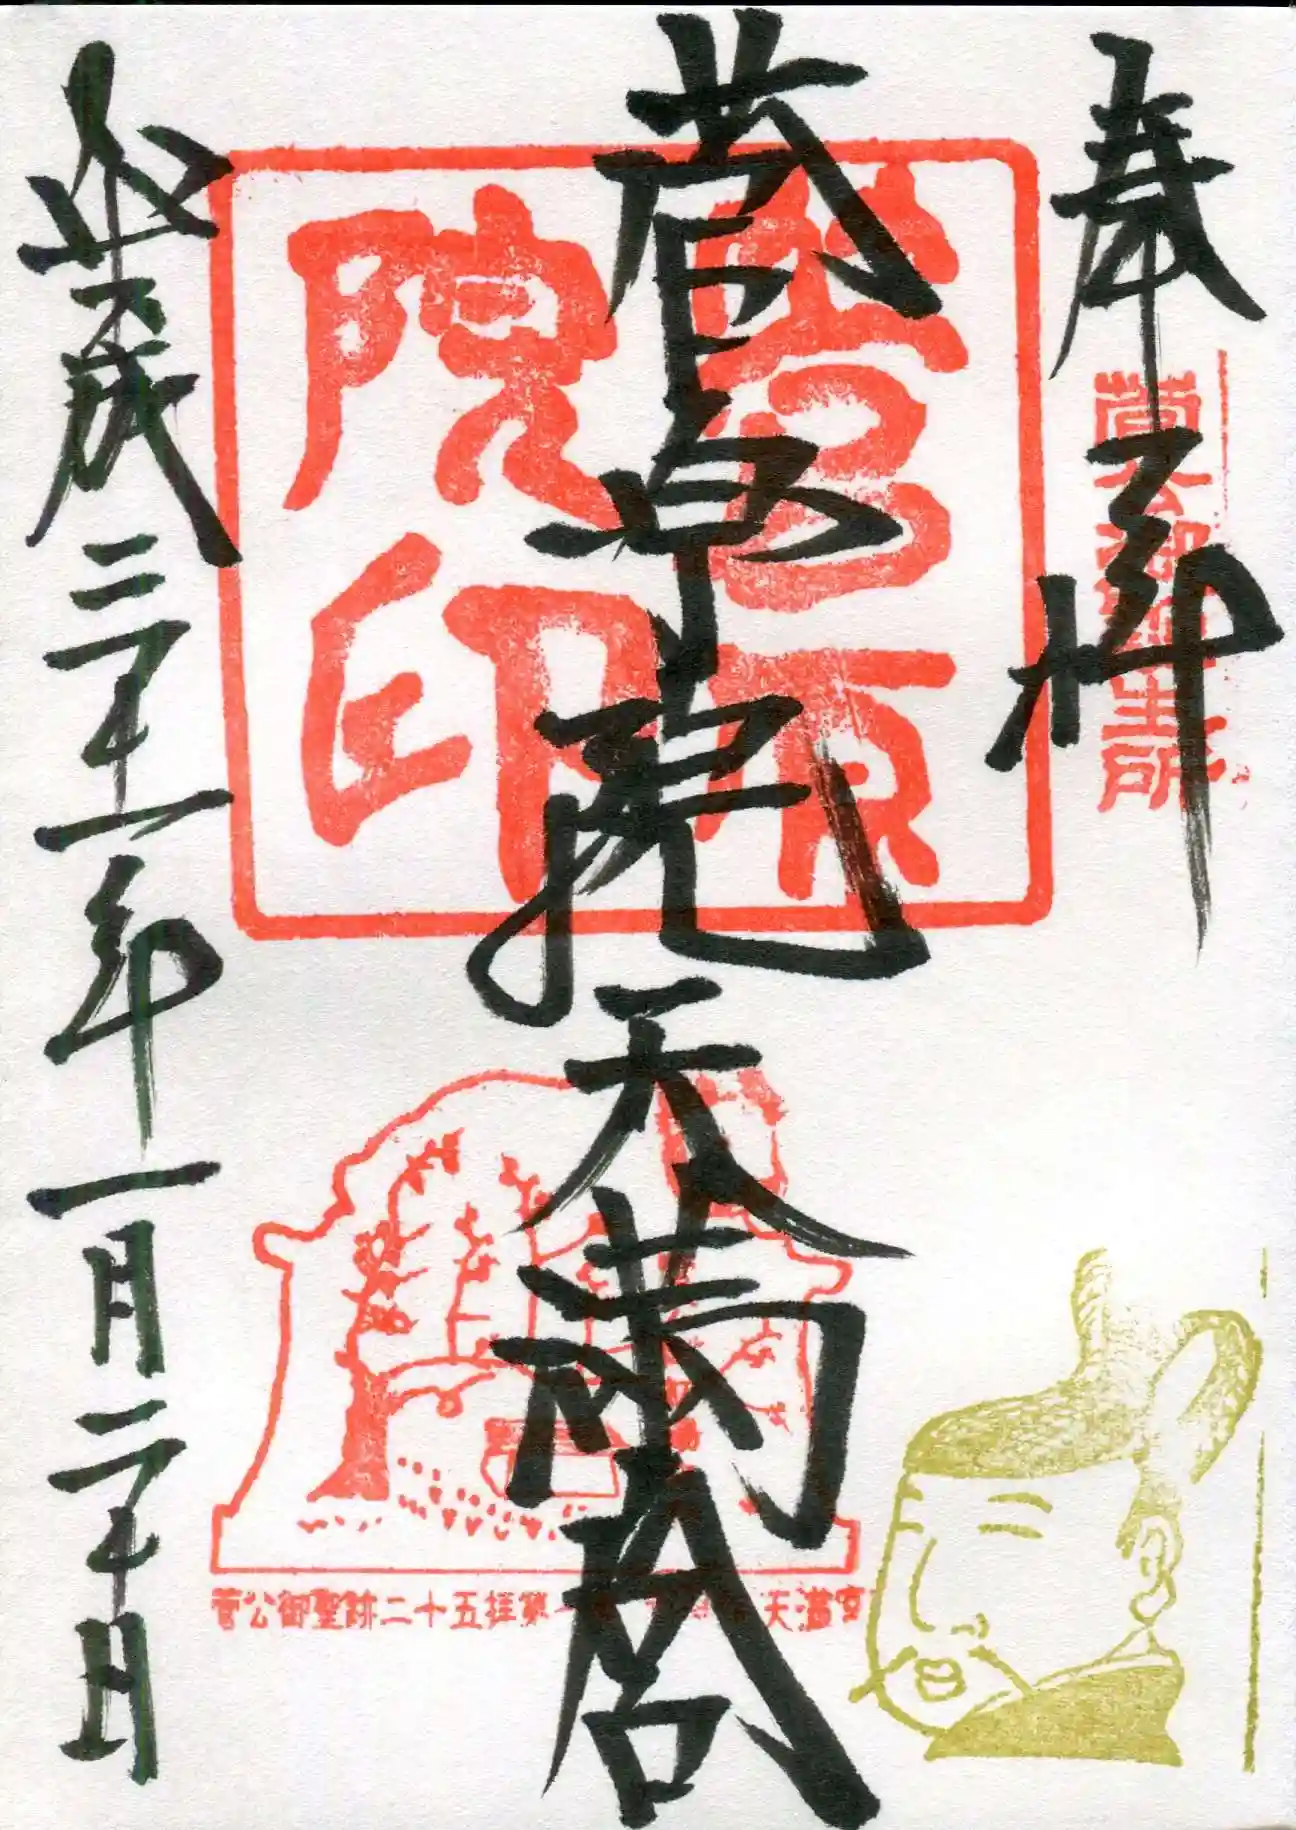 奉拝
菅公御誕生所
菅原院天満宮
菅原院印
平成三十一年一月二十日
菅公御聖跡二十五拝第一 天満宮